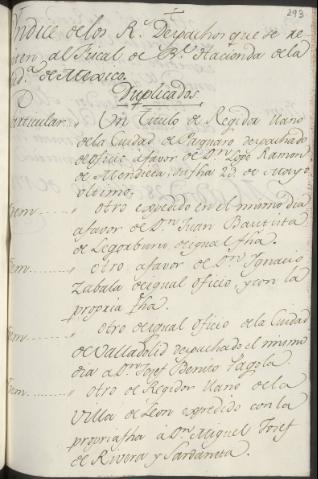 293
Yndice de los R.s Despachos que se re-
miten al Fiscal de R.l Hacienda de la
Aud.a de Mexico.
Duplicados
Particular.. „ Un Titulo de Regidor llano
de la Ciudad de Pazquaro despachado
de oficio a favor de D.n Jose Ramon
de Mendieta, su fha 23 de Mayo
ultimo.
Item...... „ otro expedido en el mismo dia
a favor de D.n Juan Bautista
de Legorburu de igual fha.
Item...... „ otro a favor de D.n Ignacio
Zabala de igual oficio, y con la
propria fha.
Item...... „ Otro de igual oficio de la Ciudad
de Valladolid despachado el mismo
dia a D.n Josef Benito Sagola.
Item...... „ otro de Regidor llano de la
Villa de Leon expedido con la
propria fha à D.n Miguel Josef
de Rivera y Sardaneta.